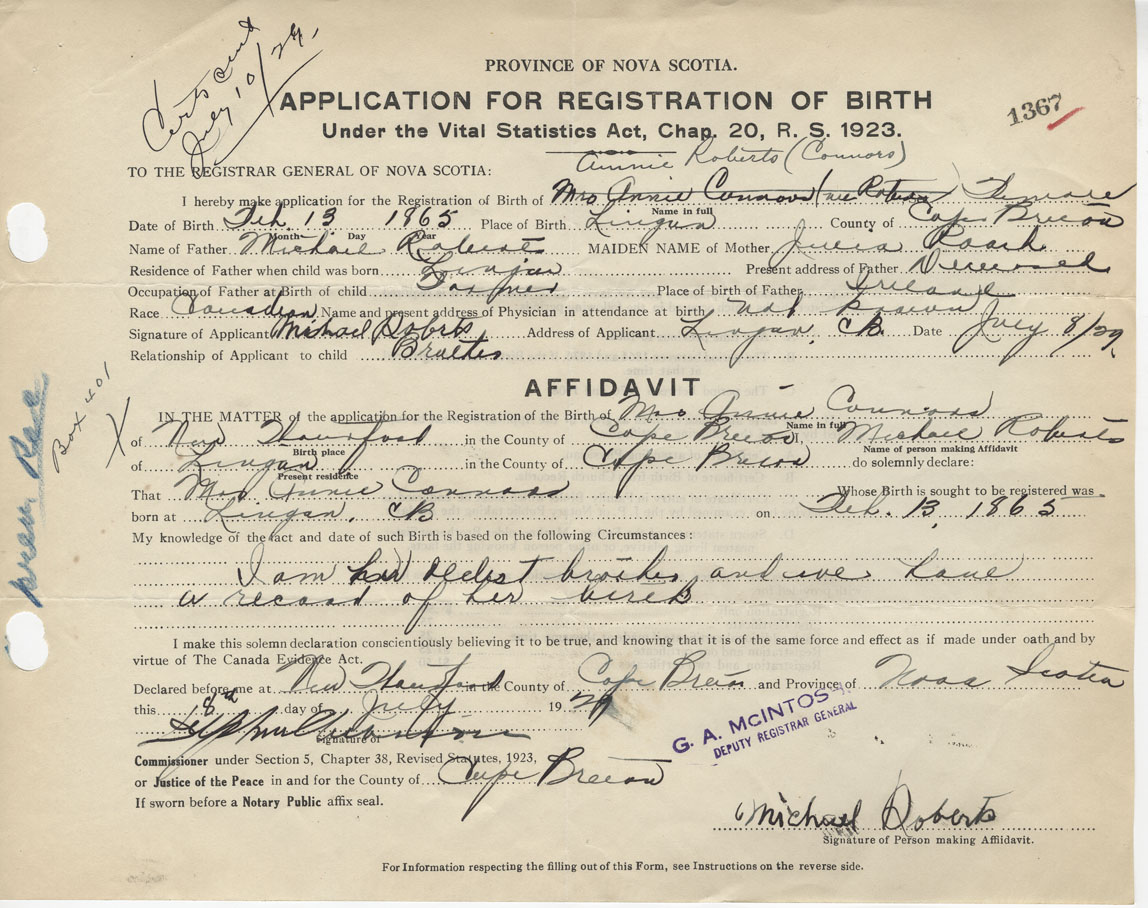 Certs sent
July 10/29.
PROVINCE OF NOVA SCOTIA.
APPLICATION FOR REGISTRATION OF BIRTH
1367
Under the Vital Statistics Act, Chap. 20, R. S. 1923.
Annie Roberts (Connors)
TO THE REGISTRAR GENERAL OF NOVA SCOTIA:
I hereby make application for the Registration of Birth of Mrs Annie Connors (nee Roberts)
Name in full
Date of Birth Feb. 13 1865 Place of Birth Lingan County of Cape Breton
Month Day Year
Name of Father Michael Roberts MAIDEN NAME of Mother Julia Roach
Residence of Father when child was born Lingan Present address of Father Deceased
Occupation of Father at Birth of child Farmer Place of birth of Father Ireland
Race Canadian Name and present address of Physician in attendance at birth not known
Signature of Applicant Michael Roberts Address of Applicant Lingan, CB. Date July 8/29.
Relationship of Applicant to child Brother
AFFIDAVIT
Box 401
X
IN THE MATTER of the application for the Registration of the Birth of Mrs Annie Connors
Name in full
of New in the County of Cape Breton I, Michael Roberts
Birth place Name of person making Affidavit
of Lingan in the County of Cape Breton do solemnly declare:
Present residence
That Mrs Annie Connors Whose Birth is sought to be registered was
born at Lingan, CB on Feb. 13, 1865
My knowledge of the fact and date of such Birth is based on the following Circumstances:
I am her oldest brother and we have
a record of her birth
I make this solemn declaration conscientiously believing it to be true, and knowing that it is of the same force and effect as if made under oath and by
virtue of The Canada Evidence Act.
Declared before me at New in the County of Cape Breton and Province of Nova Scotia
this 8th day of July 1929
G. A. McINTOSH
DEPUTY REGISTRAR GENERAL
Signature of
Commissioner under Section 5, Chapter 38, Revised Statutes, 1923,
or Justice of the Peace in and for the County of Cape Breton
If sworn before a Notary Public affix seal.
Michael Roberts
Signature of Person making Affidavit.
For Information respecting the filling out of this Form, see Instructions on the reverse side.